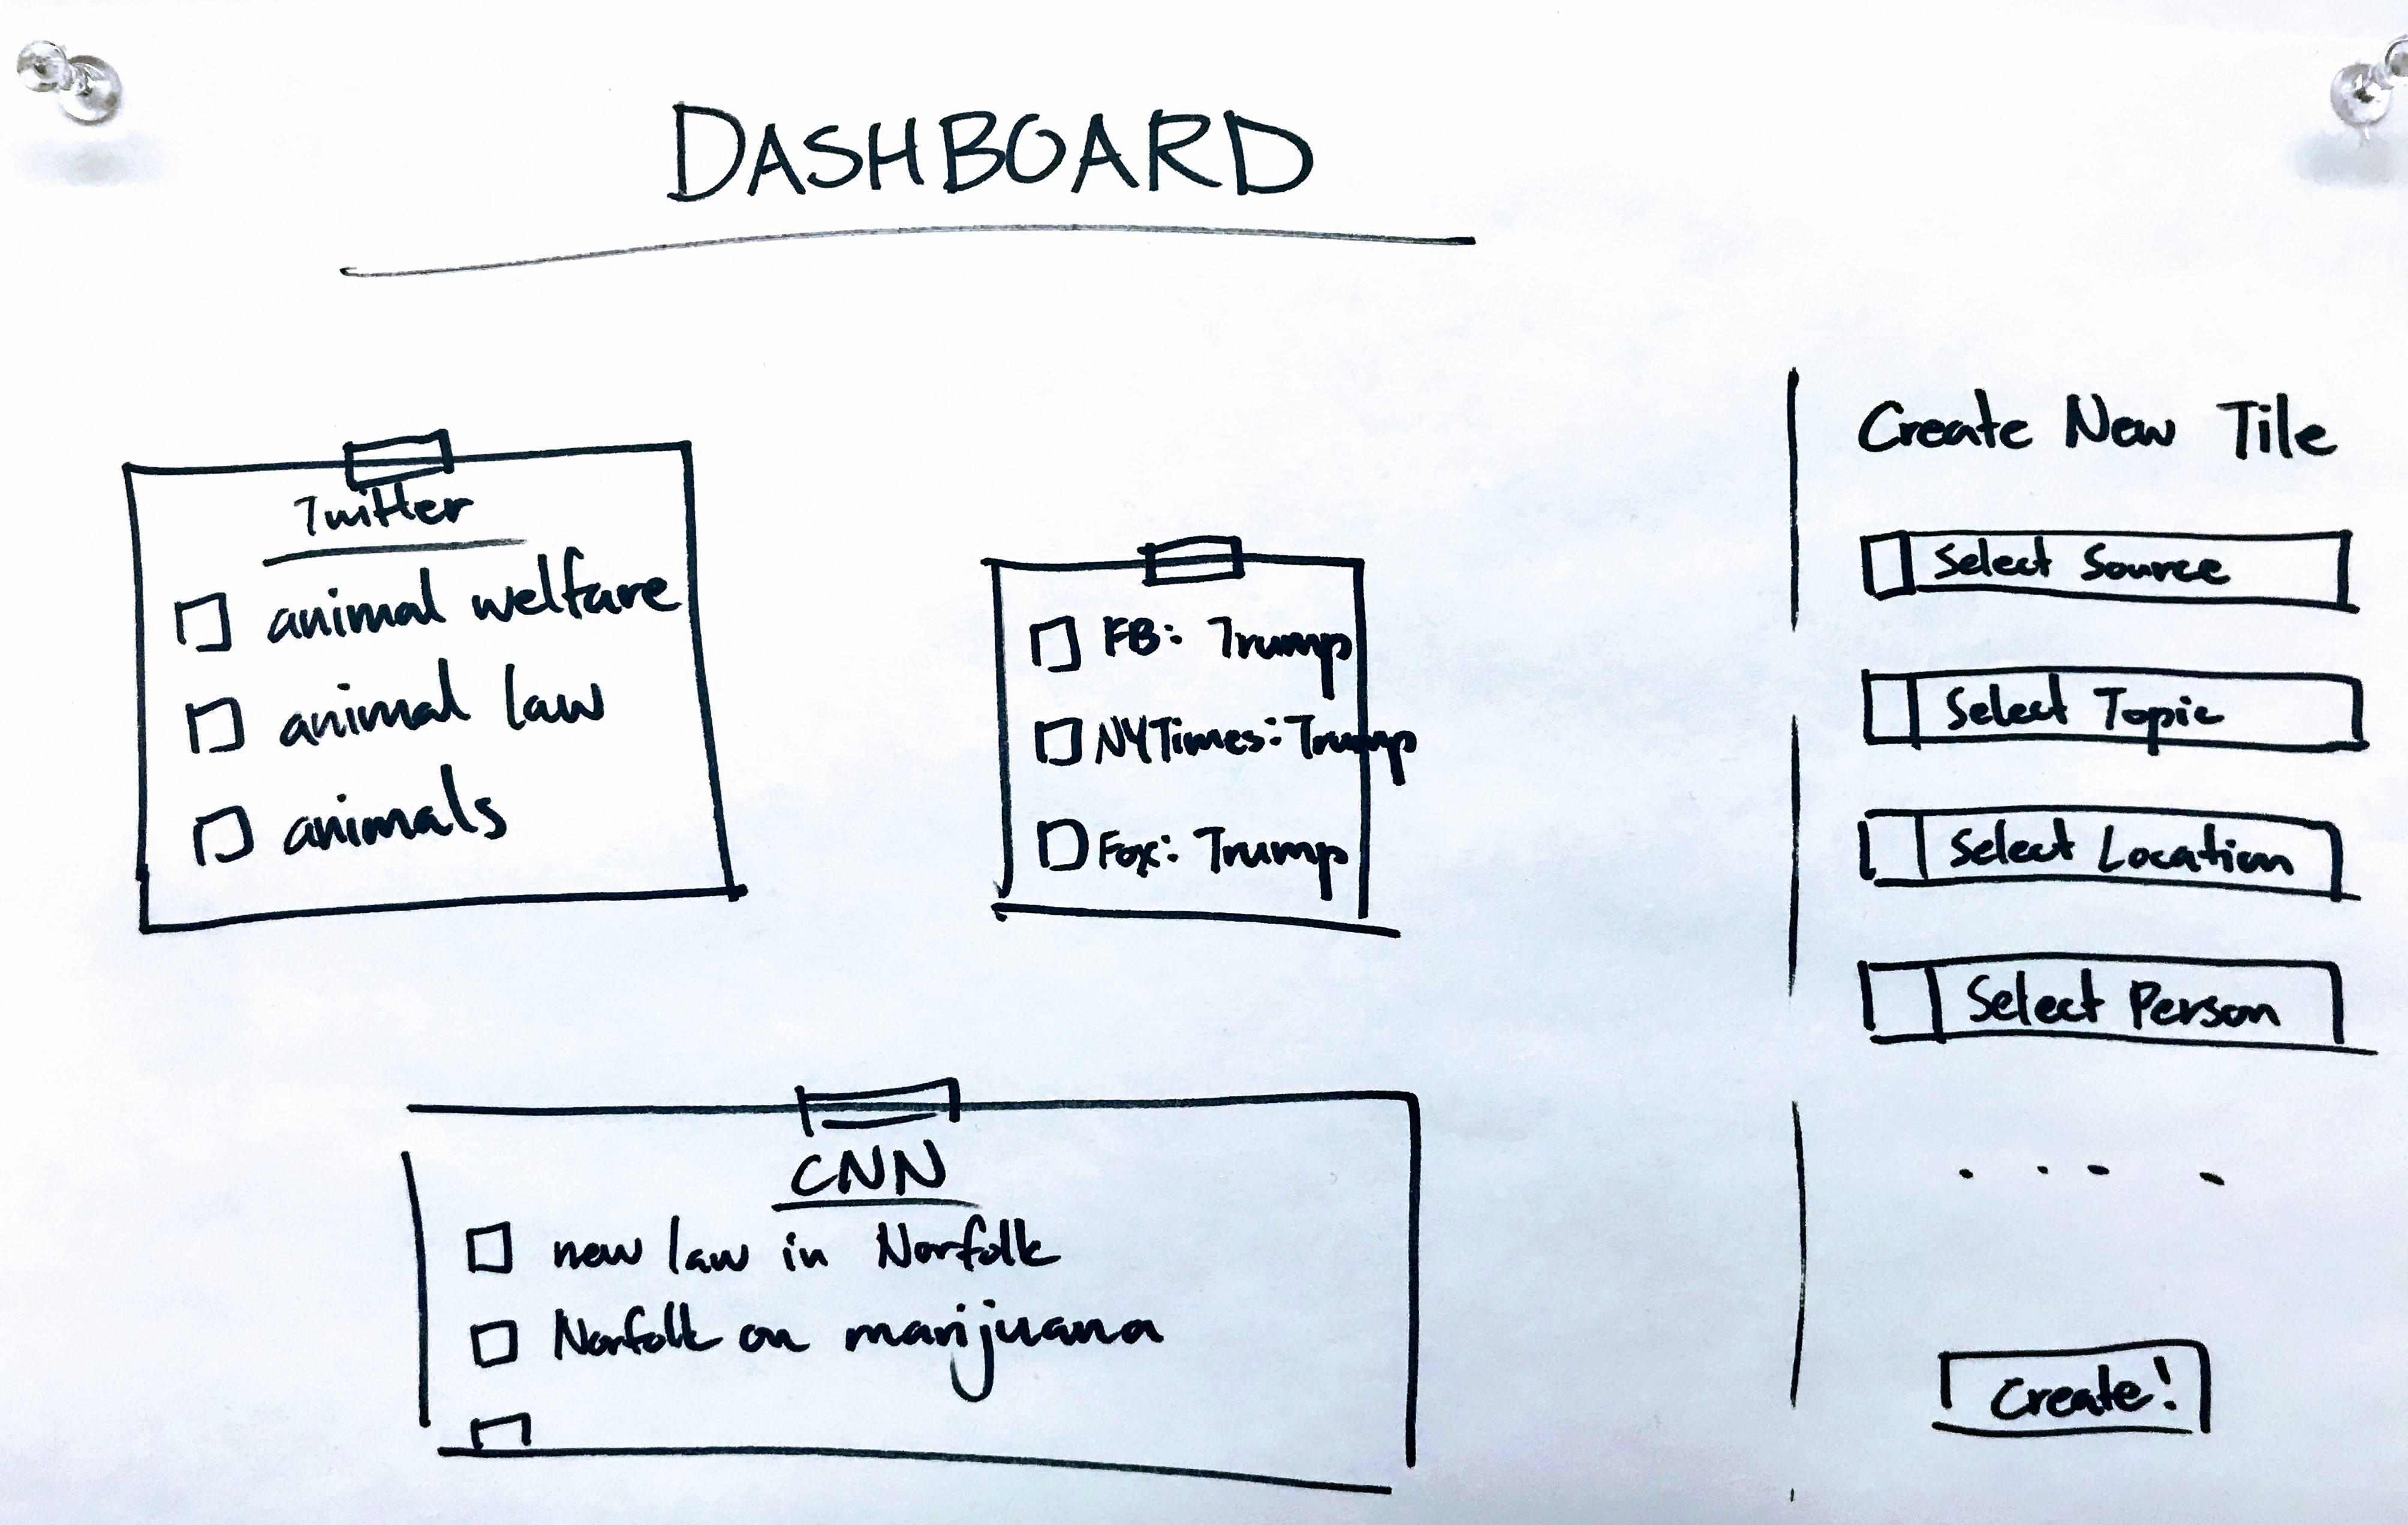 DASHBOARD
Twitter
animal welfare
animal law
animals
FB: Trump
NYTimes: Trump
Fox: Trump
CNN
new law in Norfolk
Norfolk on marijuana
Create New Tile
Select Source
Select Topic
Select Location
Select Person
....
Create!